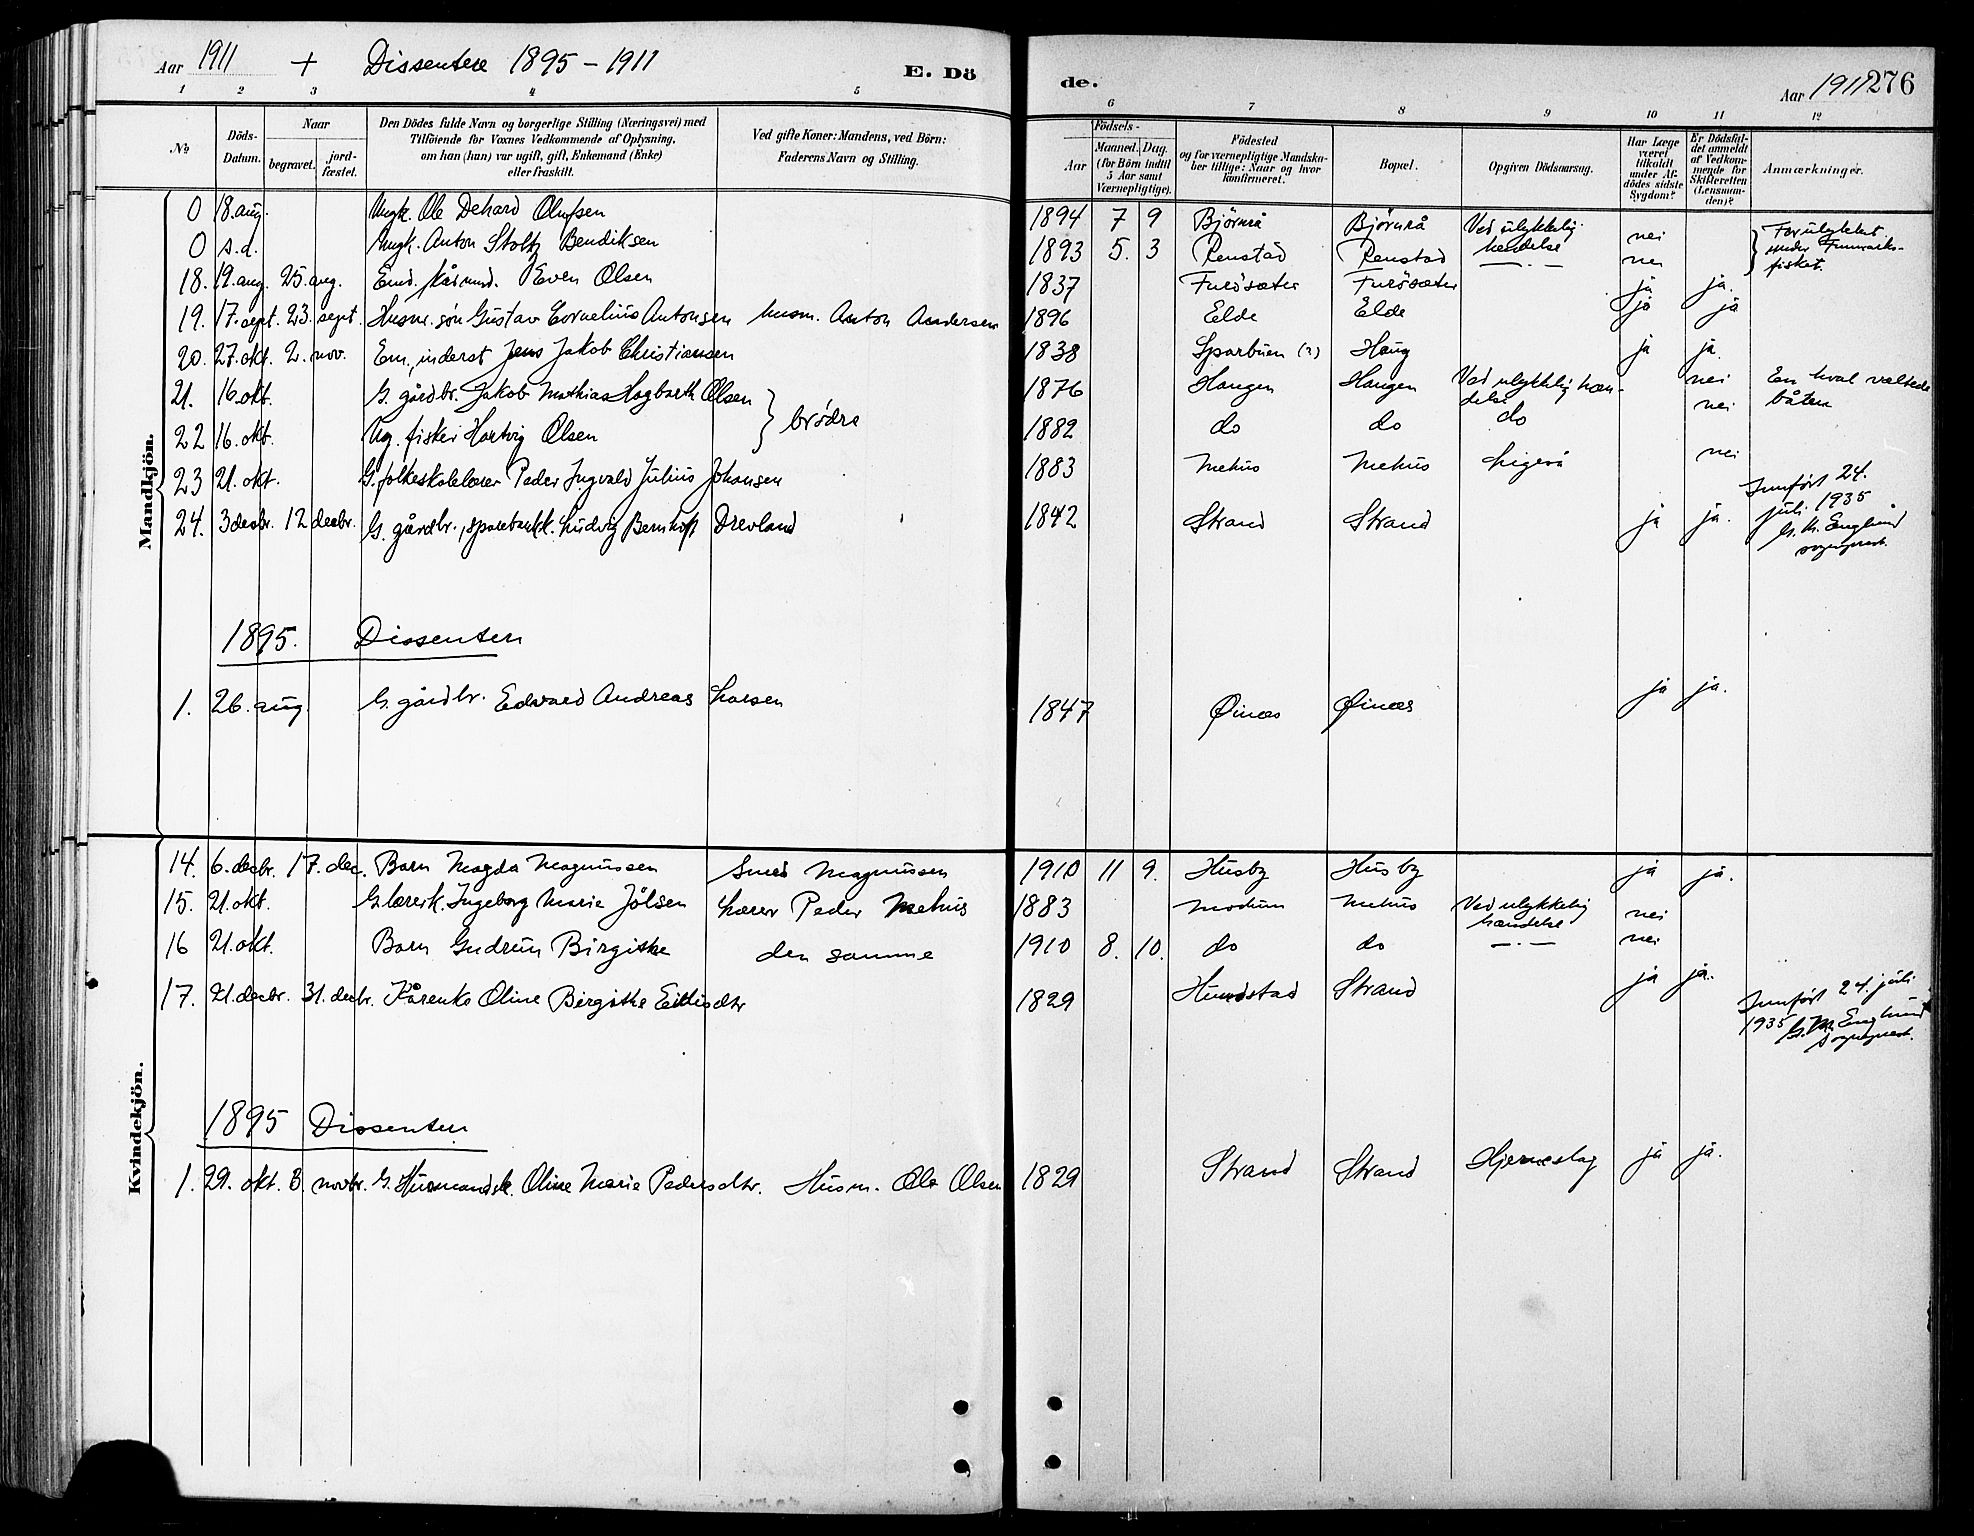 Aar 1911 + Dissentere 1895 - 1911 E. Dö
de. Aar 1911 276
1 2 3 4 5
6 7 8 9 10 11 12
No
Döds-Datum.
Naar
begravet. jord-fæstet.
Den Dödes fulde Navn og borgerlige Stilling (Næringsvei) med
Tilföiende for Voxnes Vedkommende af Oplysning,
om han (hun) var ugift, gift, Enkemand (Enke)
eller fraskilt.
Ved gifte Koner: Mandens, ved Börn:
Faderens Navn og Stilling.
Födsels-
Aar Maaned. Dag.
(for Börn indtil
5 Aar samt
Værnepligtige).
Födested
og for værnepligtige Mandska-
ber tillige: Naar og hvor
konfirmeret.
Bopæl.
Opgiven Dödsaarsag.
Har Læge
været
tilkaldt
under Af-
dödes sidste
Sygdom?
Er Dödsfal-
det anmeldt
af Vedkom-
mende for
Skifteretten
(Lensman-
den)?
Anmærkninger.
Mandkjön.
0 18. aug. Ungk. Ole Dehard Olufsen 1894 7 9 Björnrå Björnrå Ved ulykkelig hændelse nei Forulykket under Finmarks-fisket.
0 s.d. Ungk. Anton Stoltz Bendiksen 1893 5. 3 Renstad Renstad — . — nei
18. 19. aug. 25. aug. Emd. kårmd. Even Olsen 1837 Furösæter Furösæter ja ja.
19. 17. sept. 23. sept. Husm. sön Gustav Cornelius Antonsen husm. Anton Andersen 1896 Elde Elde ja ja
20. 27. okt. 2. nov. Em., inderst Jens Jakob Christiansen 1838 Sparbuen (?) Haug ja ja.
21. 16. okt. G. gårdbr. Jakob Mathias Hagbarth Olsen } brödre 1876 Haugen Haugen Ved ulykkelig hæn-delse nei En hval væltede båten
22 16. okt. Ug. fisker Hartvig Olsen 1882 do do do nei
23 21. okt. G. folkeskolelærer Peder Ingvald Julius Johansen 1883 Mehus Mehus Ligeså nei
24. 3 decbr. 12 decbr. G. gårdbr., sparebankk. Ludvig Bernhoft Drevland 1842 Strand Strand ja ja.
Innført 24.
juli 1935
G. M. Englund
sogneprest.
1895. Dissenter
1. 26. aug. G. gårdbr. Edvard Andreas Larsen 1847 Øinæs Øinæs ja ja.
Kvindekjön.
14. 6. decbr. 17. dec. Barn Magda Magnussen Smed Magnussen 1910 11 9. Husby Husby ja ja.
15. 21. okt. G. lærerk. Ingeborg Marie Jölsen Lærer Peder Mehus 1883 Modum Mehus Ved ulykkelig hændelse nei
16 21. okt. Barn Gudrun Birgitte den samme 1910 8. 10. do do — . — nei
17. 21. decbr. 31. decbr. Kårenke Oline Birgitte Eilertsdtr 1829 Hundstad Strand ja ja.
Innført 24. juli
1935 G. M. Englund
sogneprest.
1895 Dissenter
1. 29. okt. 3. novbr. G. Husmandsk. Oline Marie Pedersdtr. Husm. Ole Olsen 1829 Strand Strand Hjerneslag ja ja.